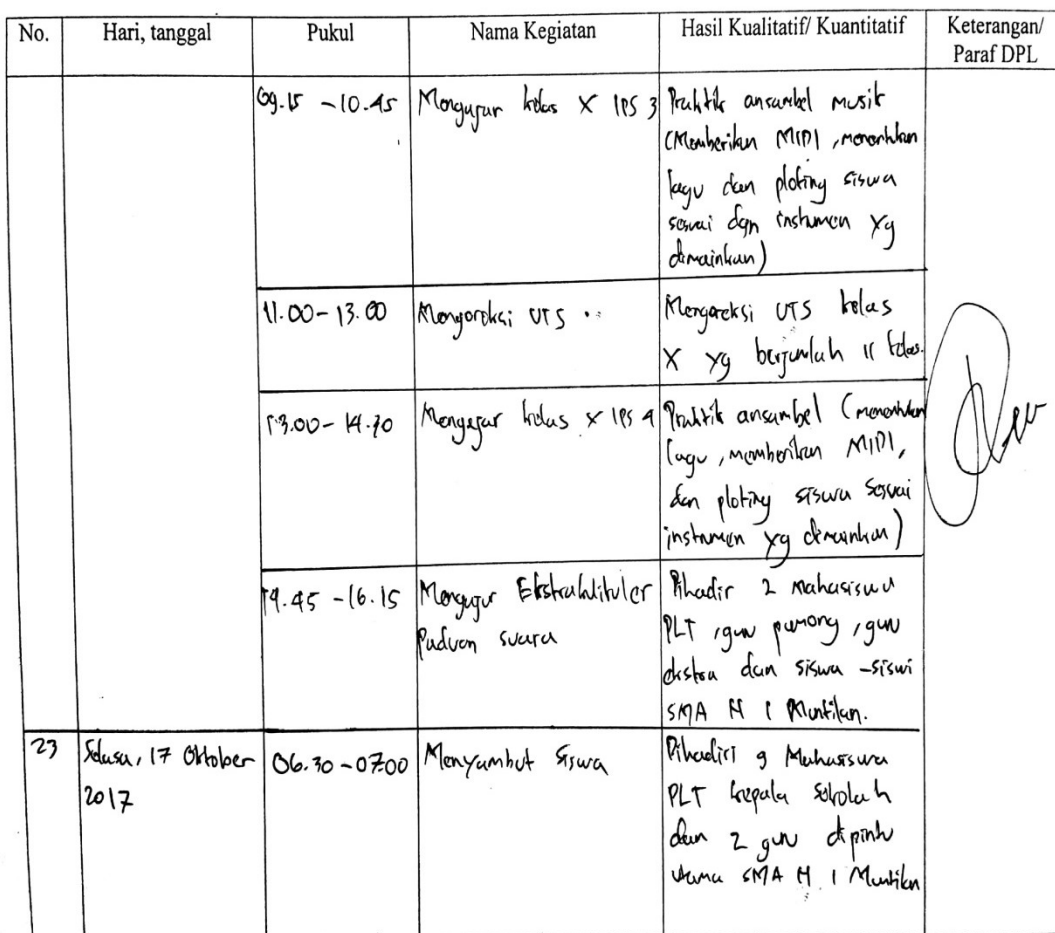 No.
Hari, tanggal
Pukul
Nama Kegiatan
Hasil Kualitatif/ Kuantitatif
Keterangan/
Paraf DPL
09.15 - 10.45
Mengajar kelas X IPS 3
Praktik ansambel musik
(Memberikan MIDI, menentukan
lagu dan ploting siswa
sesuai dgn instrumen yg
dimainkan)
11.00 - 13.00
Mengoreksi UTS
Mengoreksi UTS kelas
X yg berjumlah 11 kelas.
13.00 - 14.30
Mengajar kelas X IPS 4
Praktik ansambel (menentukan
lagu, memberikan MIDI,
dan ploting siswa sesuai
instrumen yg dimainkan)
14.45 - 16.15
Mengajar Ekstrakulikuler
Paduan suara
Dihadiri 2 mahasiswa
PLT, guru pamong, guru
ekstra dan siswa - siswi
SMA N 1 Muntilan.
23
Selasa, 17 Oktober
2017
06.30 - 07.00
Menyambut Siswa
Dihadiri 9 Mahasiswa
PLT kepala sekolah
dan 2 guru dipintu
utama SMA N 1 Muntilan